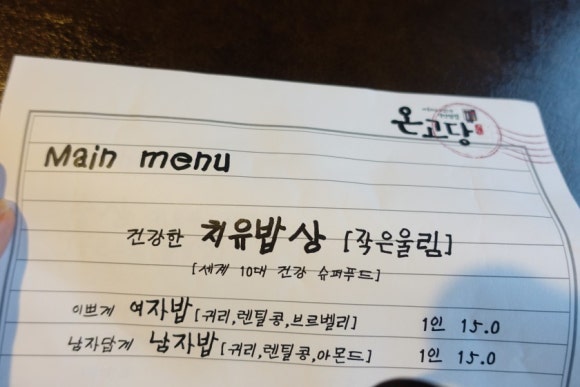 온고당
Main menu
건강한 치유밥상 [작은울림]
[세계 10대 건강 슈퍼푸드]
이쁘게 여자밥 [귀리,렌틸콩,브르벨리] 1인 15.0
남자답게 남자밥 [귀리,렌틸콩,아몬드] 1인 15.0